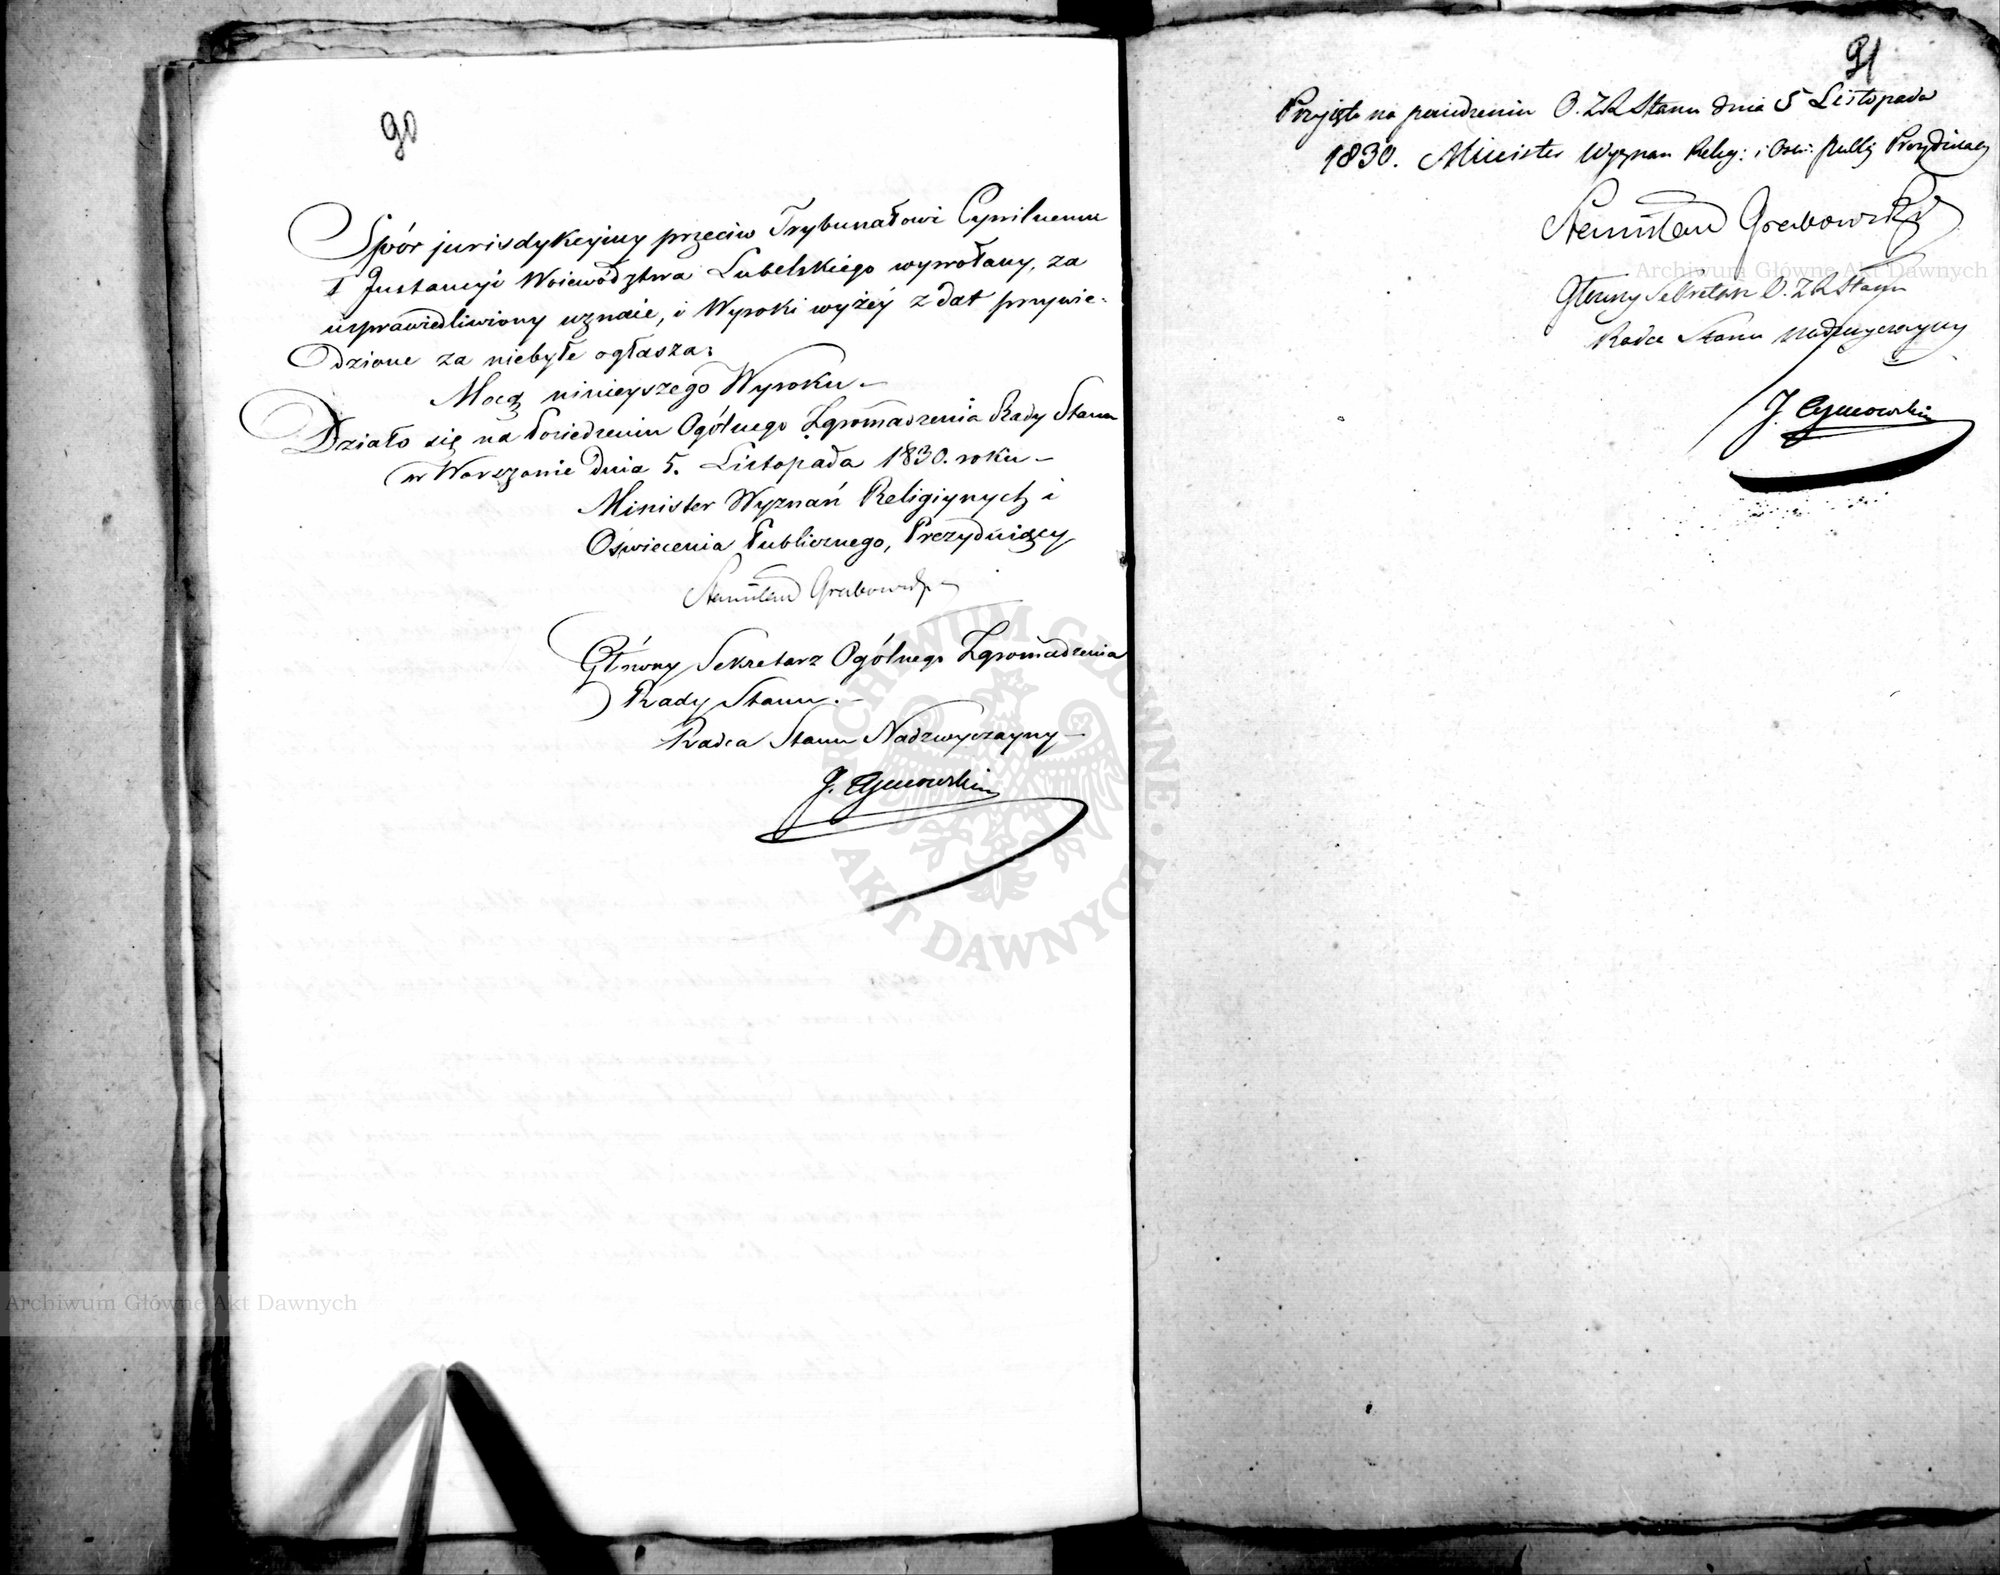 90
Spór jurisdykcyiny przeciw Trybunałowi Cywilnemu
I Instancyi Województwa Lubelskiego wywołany, za
usprawiedliwiony uznaie, i Wyroki wyżéy z dat przywie-
dzione za niebyłe ogłasza;
Mocą ninieyszego Wyroku.-
Działo się na Posiedzeniu Ogólnego Zgromadzenia Rady Stanu
w Warszawie dnia 5. Listopada 1830. roku-
Minister Wyznań Religiynych i
Oświecenia Publicznego, Prezyduiący
Stanisław Grabowski
Główny Sekretarz Ogólnego Zgromadzenia
Rady Stanu.-
Radca Stanu Nadzwyczayny-
J. Tymowski
91
Przyięto na posiedzeniu O. Z R Stanu dnia 5 Listopada
1830. Minister Wyznan Relig: i Ośw: Publ Prezyduiacy
Stanisław Grabowski
Głowny Sekretarz O. Z R Stanu
Radca Stanu Nadzwyczayny
J. Tymowski
Archiwum Główne Akt Dawnych
ARCHIWUM GŁÓWNE AKT DAWNYCH
Archiwum Główne Akt Dawnych